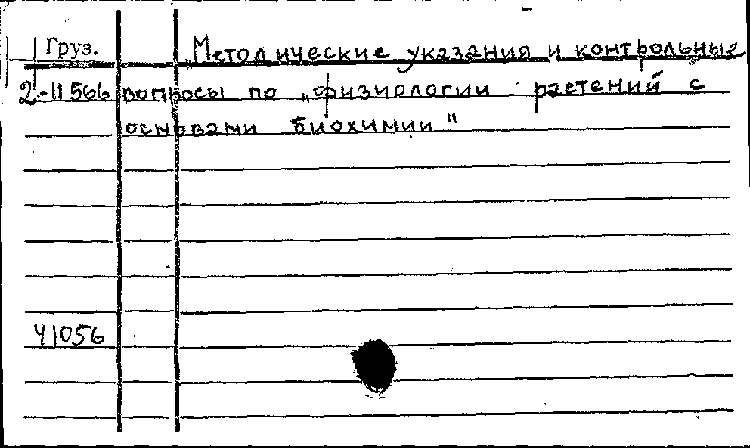 Груз. Методические указания и контрольные
2-11566 вопросы по „физиологии растений с
основами биохимии"
41056